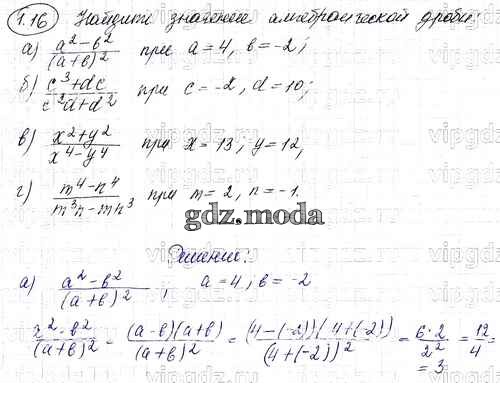 1.16 Найдите значение алгебраической дроби:
а) \frac{a^2-b^2}{(a+b)^2} при a=4, b=-2;
б) \frac{c^3+dc}{c^2d+d^2} при c=-2, d=10;
в) \frac{x^2+y^2}{x^4-y^4} при x=13, y=12,
г) \frac{m^4-n^4}{m^3n-mn^3} при m=2, n=-1.
gdz.moda
Решение:
а) \frac{a^2-b^2}{(a+b)^2}, a=4, b=-2
\frac{a^2-b^2}{(a+b)^2} = \frac{(a-b)(a+b)}{(a+b)^2} = \frac{(4-(-2))(4+(-2))}{(4+(-2))^2} = \frac{6·2}{2^2} = \frac{12}{4} =
= 3